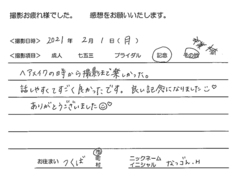 撮影お疲れ様でした。 感想をお願いいたします。
<撮影日時> 2021年 2月 1日(月)
<撮影項目> 成人 七五三 ブライダル 記念 その他
ヘアメイクの時から撮影まで楽しかった。
話しやすくてすごく良かったです。良い記念になりました♡
ありがとうございました☺♡
お住まい つくば 市 町 村 ニックネーム イニシャル なっごん.H